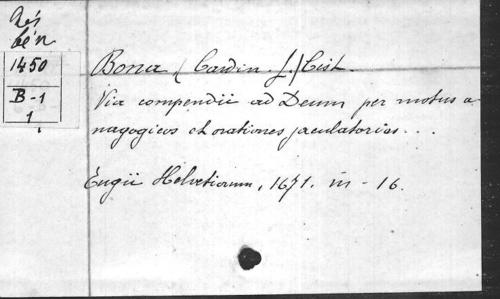 Rés
bén
1450
B-1
1
Bona (Cardin. J.) Cist.
Via compendii ad Deum per motus a-
nagogicos et orationes jaculatorias...
Tugii Helvetiorum, 1671. in-16.